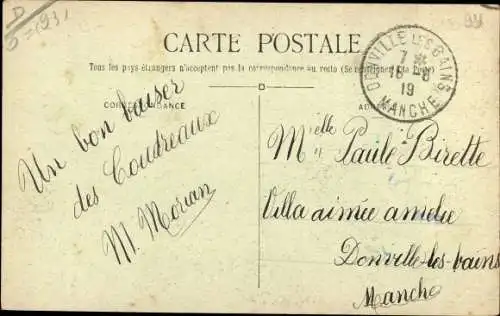 CARTE POSTALE
Tous les pays étrangers n'acceptent pas la correspondance au recto (Se renseigner à la Poste)
CORRESPONDANCE
DONVILLE LES BAINS
7
16-8
19
MANCHE
Un bon baiser
des Coudreaux
M. Morian
Melle Paule Birette
Villa aimée amélie
Donville-les-bains
Manche